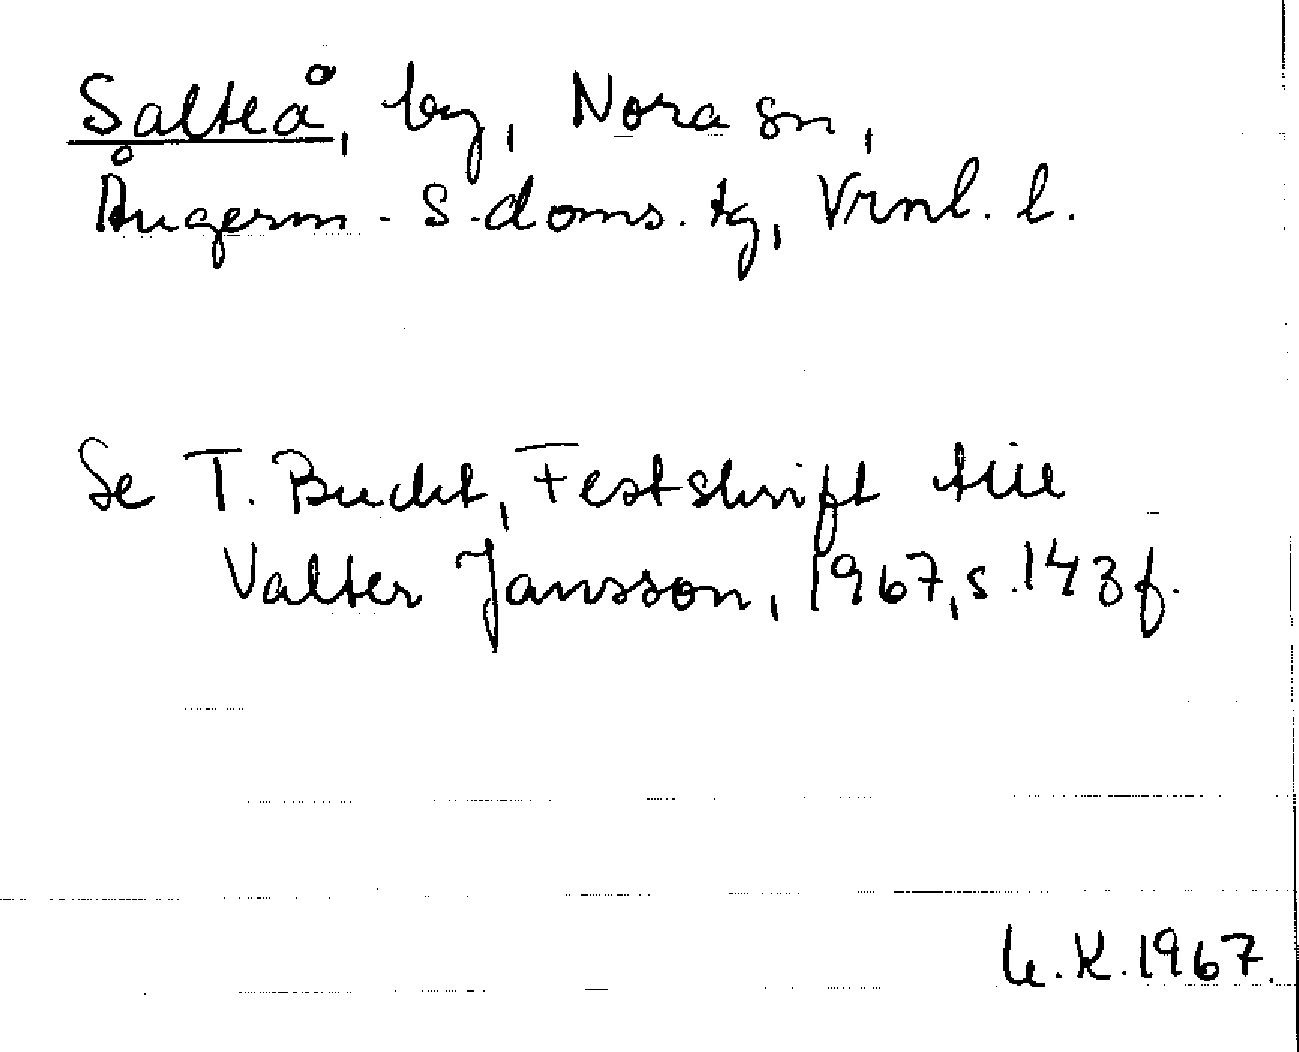 Salteå, by, Nora sn,
Ångerm. S. doms. tg, Vrnl. l.
Se T. Bucht, Festskrift till
Valter Jansson, 1967, s. 143 f.
K. 1967.